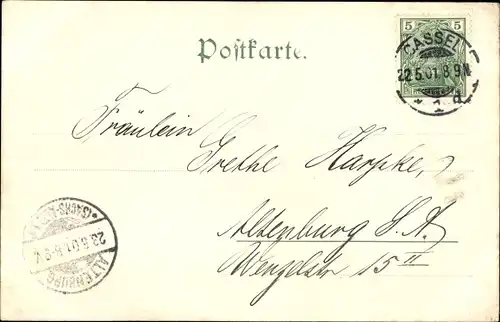 Postkarte.
5 5
CASSEL
22.5.01.8-9N
* 1 d
Fräulein
Grethe Harpke,
Altenburg S. A.
Wenzelstr 15 II
ALTENBURG
23.5.01.8-9V.